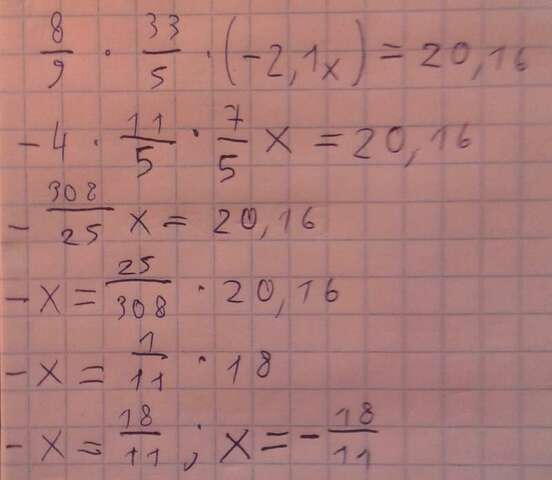 8/9 · 33/5 · (-2,1x) = 20,16
-4 · 11/5 · 7/5 x = 20,16
-308/25 x = 20,16
-x = 25/308 · 20,16
-x = 1/11 · 18
-x = 18/11 ; x = -18/11